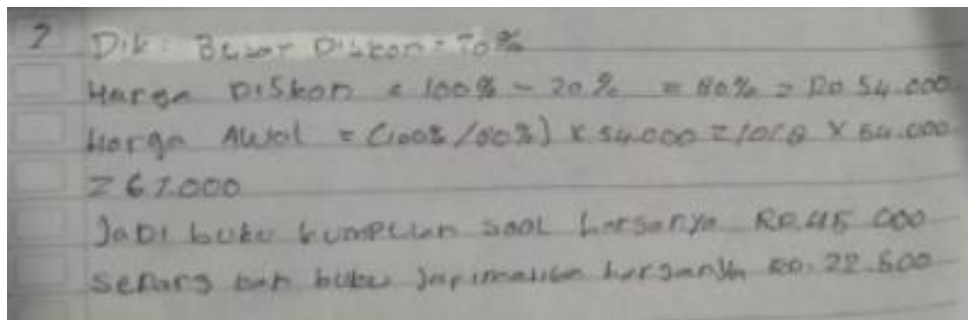 2 Dik: Besar Diskon = 20%
Harga Diskon = 100% - 20% = 80% = Rp 54.000
Harga Awal = (100% / 80%) x 54.000 = 10/8 x 54.000
= 67.000
Jadi buku kumpulan soal harganya Rp. 45.000
Sedang kan buku Jarimatika harganya Rp. 22.500